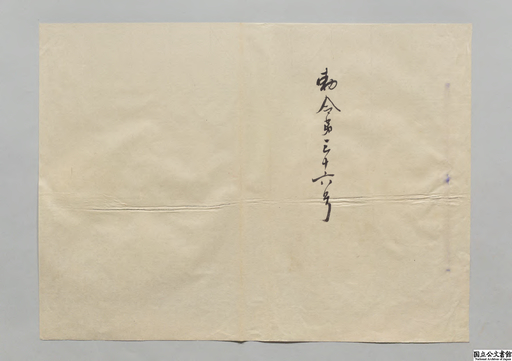 勅令第三十六号
国立公文書館
National Archives of Japan